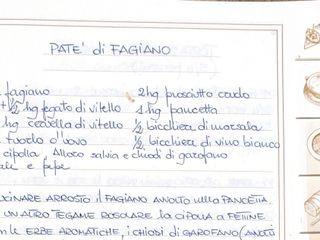 PATE' di FAGIANO
fagiano 2 hg prosciutto crudo
+ ½ hg fegato di vitello 1 hg pancetta
hg cervella di vitello ½ bicchiere di marsala
tuorlo d'uovo ½ bicchiere di vino bianco
cipolla Alloro salvia e chiodi di garofano
e pepe
ARROSTO IL FAGIANO AVVOLTO nella PANCETTA.
UN ALTRO TEGAME ROSOLARE la CIPOLLA a FETTINE
le ERBE AROMATICHE, i CHIODI di GAROFANO